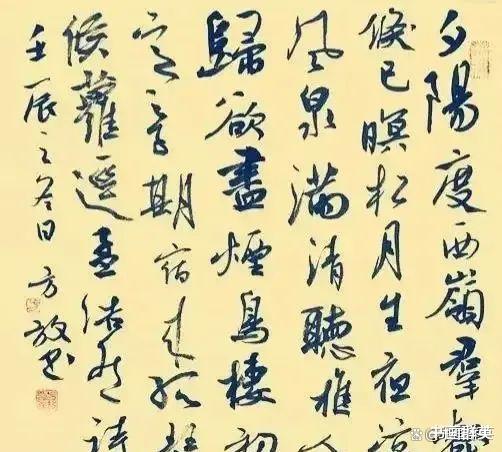 夕陽度西嶺羣壑
倏已暝松月生夜涼
風泉滿清聽樵人
歸欲盡煙鳥棲初
定之子期宿来孤琴
候蘿逕孟浩然詩
壬辰之冬日方放书
书画群英